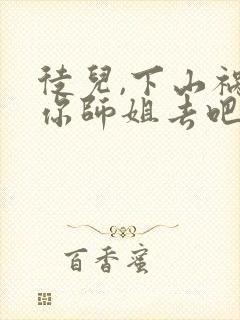 徒兒,下山禍
你師姐去吧
百香蜜